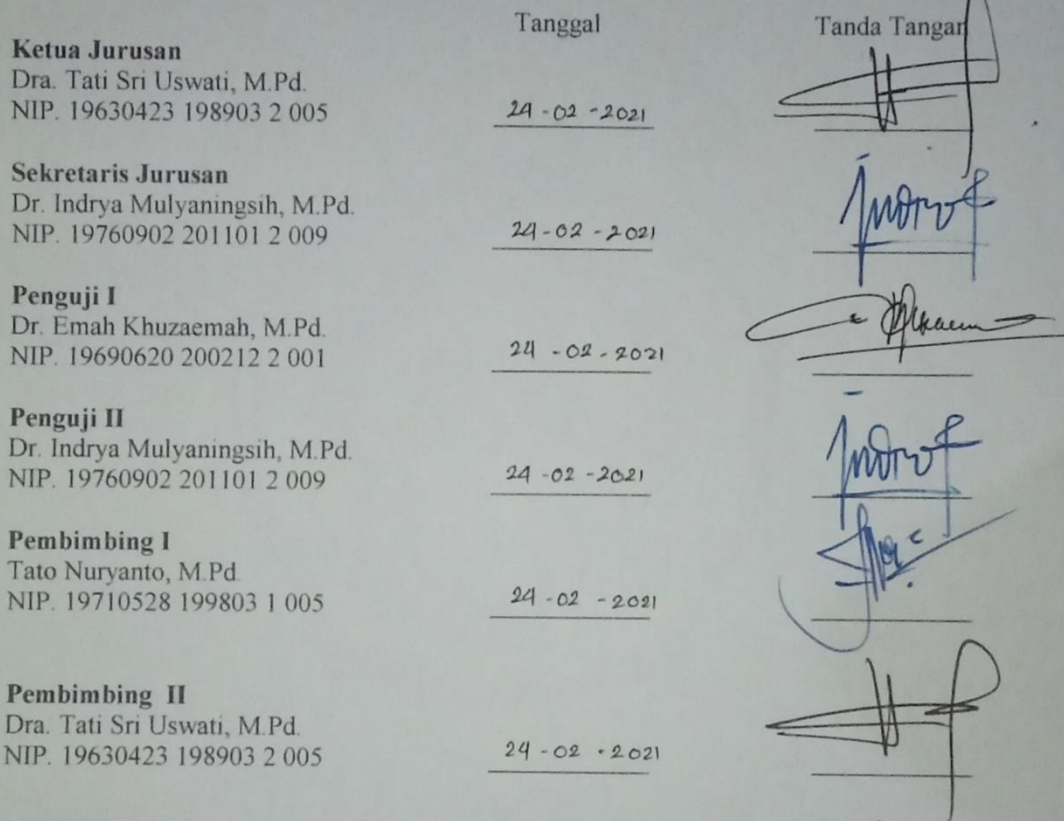 Tanggal Tanda Tangan
Ketua Jurusan
Dra. Tati Sri Uswati, M.Pd.
NIP. 19630423 198903 2 005 24-02-2021
Sekretaris Jurusan
Dr. Indrya Mulyaningsih, M.Pd.
NIP. 19760902 201101 2 009 24-02-2021
Penguji I
Dr. Emah Khuzaemah, M.Pd.
NIP. 19690620 200212 2 001 24-02-2021
Penguji II
Dr. Indrya Mulyaningsih, M.Pd.
NIP. 19760902 201101 2 009 24-02-2021
Pembimbing I
Tato Nuryanto, M.Pd.
NIP. 19710528 199803 1 005 24-02-2021
Pembimbing II
Dra. Tati Sri Uswati, M.Pd.
NIP. 19630423 198903 2 005 24-02-2021